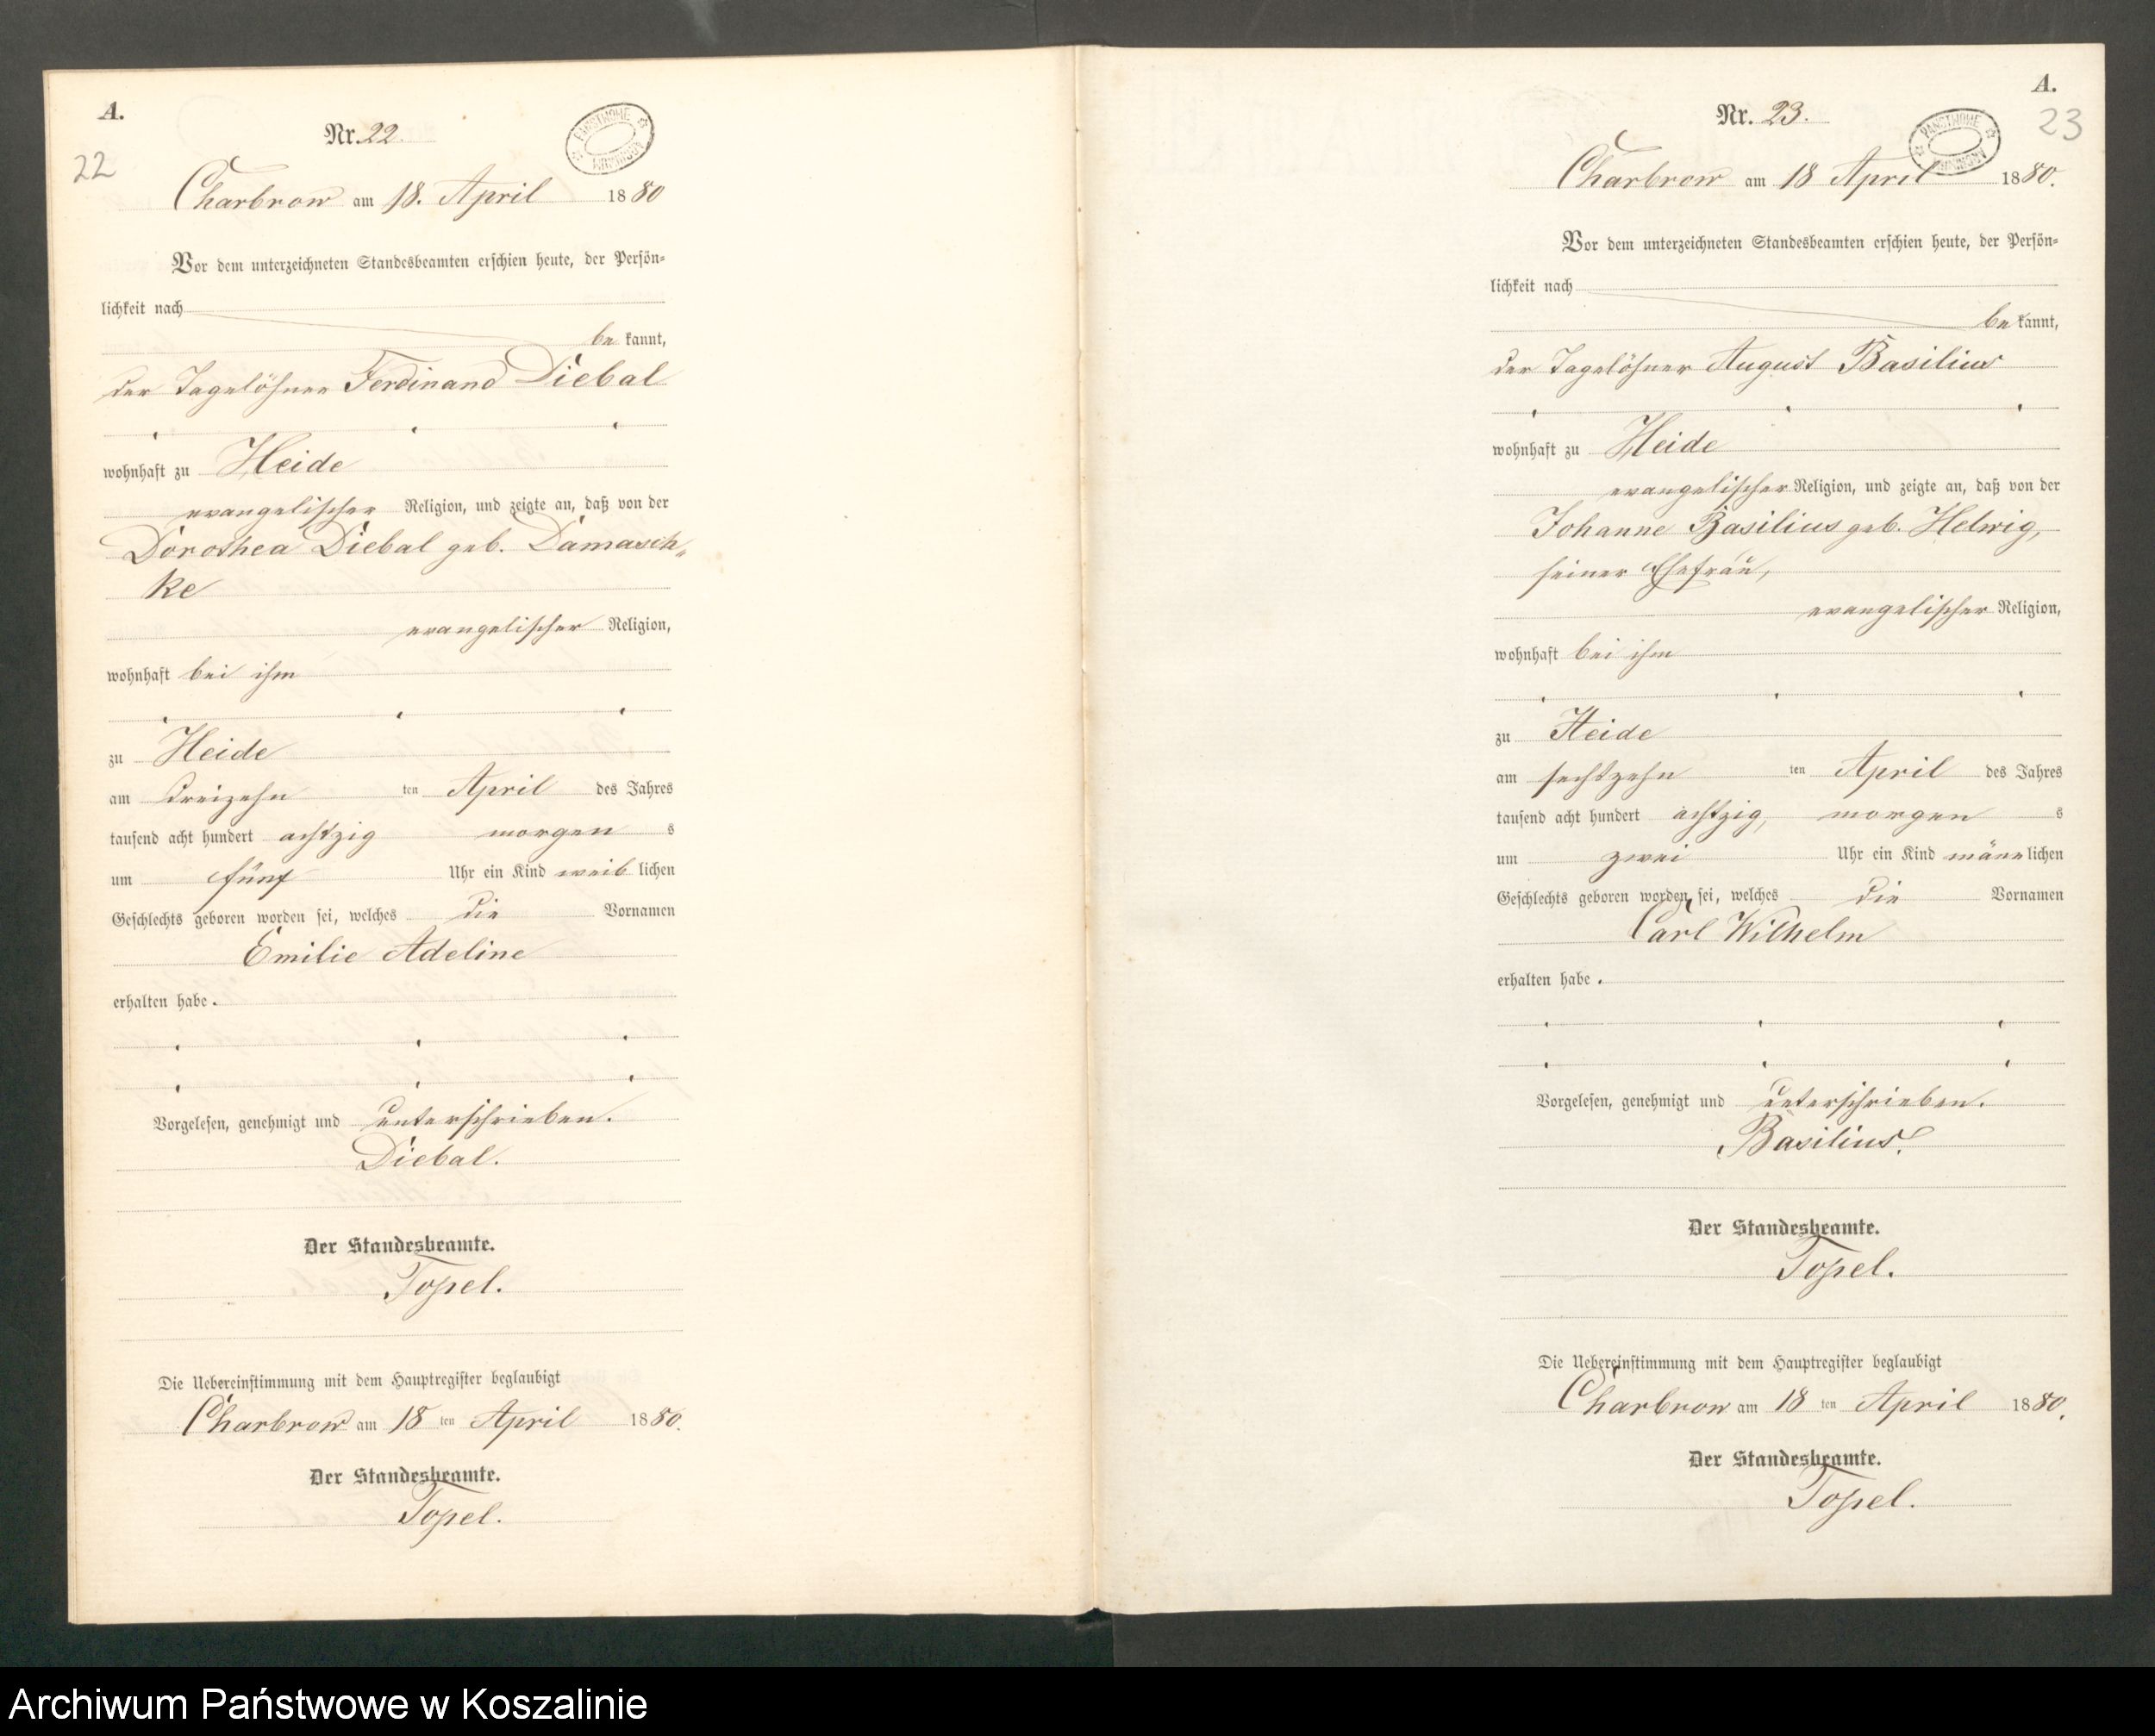 A.
Nr. 22.
22
PAŃSTWOWE ARCHIWUM
Charbrow am 18. April 1880
Vor dem unterzeichneten Standesbeamten erschien heute, der Persön-
lichkeit nach
be kannt,
der Tagelöhner Ferdinand Diebal
wohnhaft zu Heide
evangelischer Religion, und zeigte an, daß von der
Dorothea Diebal geb. Damasch„
ke
evangelischer Religion,
wohnhaft bei ihm
zu Heide
am dreizehn ten April des Jahres
tausend acht hundert achtzig morgen s
um fünf Uhr ein Kind weib lichen
Geschlechts geboren worden sei, welches die Vornamen
Emilie Adeline
erhalten habe.
Vorgelesen, genehmigt und unterschrieben.
Diebal.
Der Standesbeamte.
Topel.
Die Uebereinstimmung mit dem Hauptregister beglaubigt
Charbrow am 18 ten April 1880.
Der Standesbeamte.
Topel.
A.
Nr. 23.
23
PAŃSTWOWE ARCHIWUM
Charbrow am 18 April 1880.
Vor dem unterzeichneten Standesbeamten erschien heute, der Persön-
lichkeit nach
be kannt,
der Tagelöhner August Basilius
wohnhaft zu Heide
evangelischer Religion, und zeigte an, daß von der
Johanne Basilius geb. Helwig,
seiner Ehefrau,
evangelischer Religion,
wohnhaft bei ihm
zu Heide
am sechszehn ten April des Jahres
tausend acht hundert achtzig, morgen s
um zwei Uhr ein Kind männ lichen
Geschlechts geboren worden sei, welches die Vornamen
Carl Wilhelm
erhalten habe.
Vorgelesen, genehmigt und unterschrieben.
Basilius.
Der Standesbeamte.
Topel.
Die Uebereinstimmung mit dem Hauptregister beglaubigt
Charbrow am 18 ten April 1880.
Der Standesbeamte.
Topel.
Archiwum Państwowe w Koszalinie